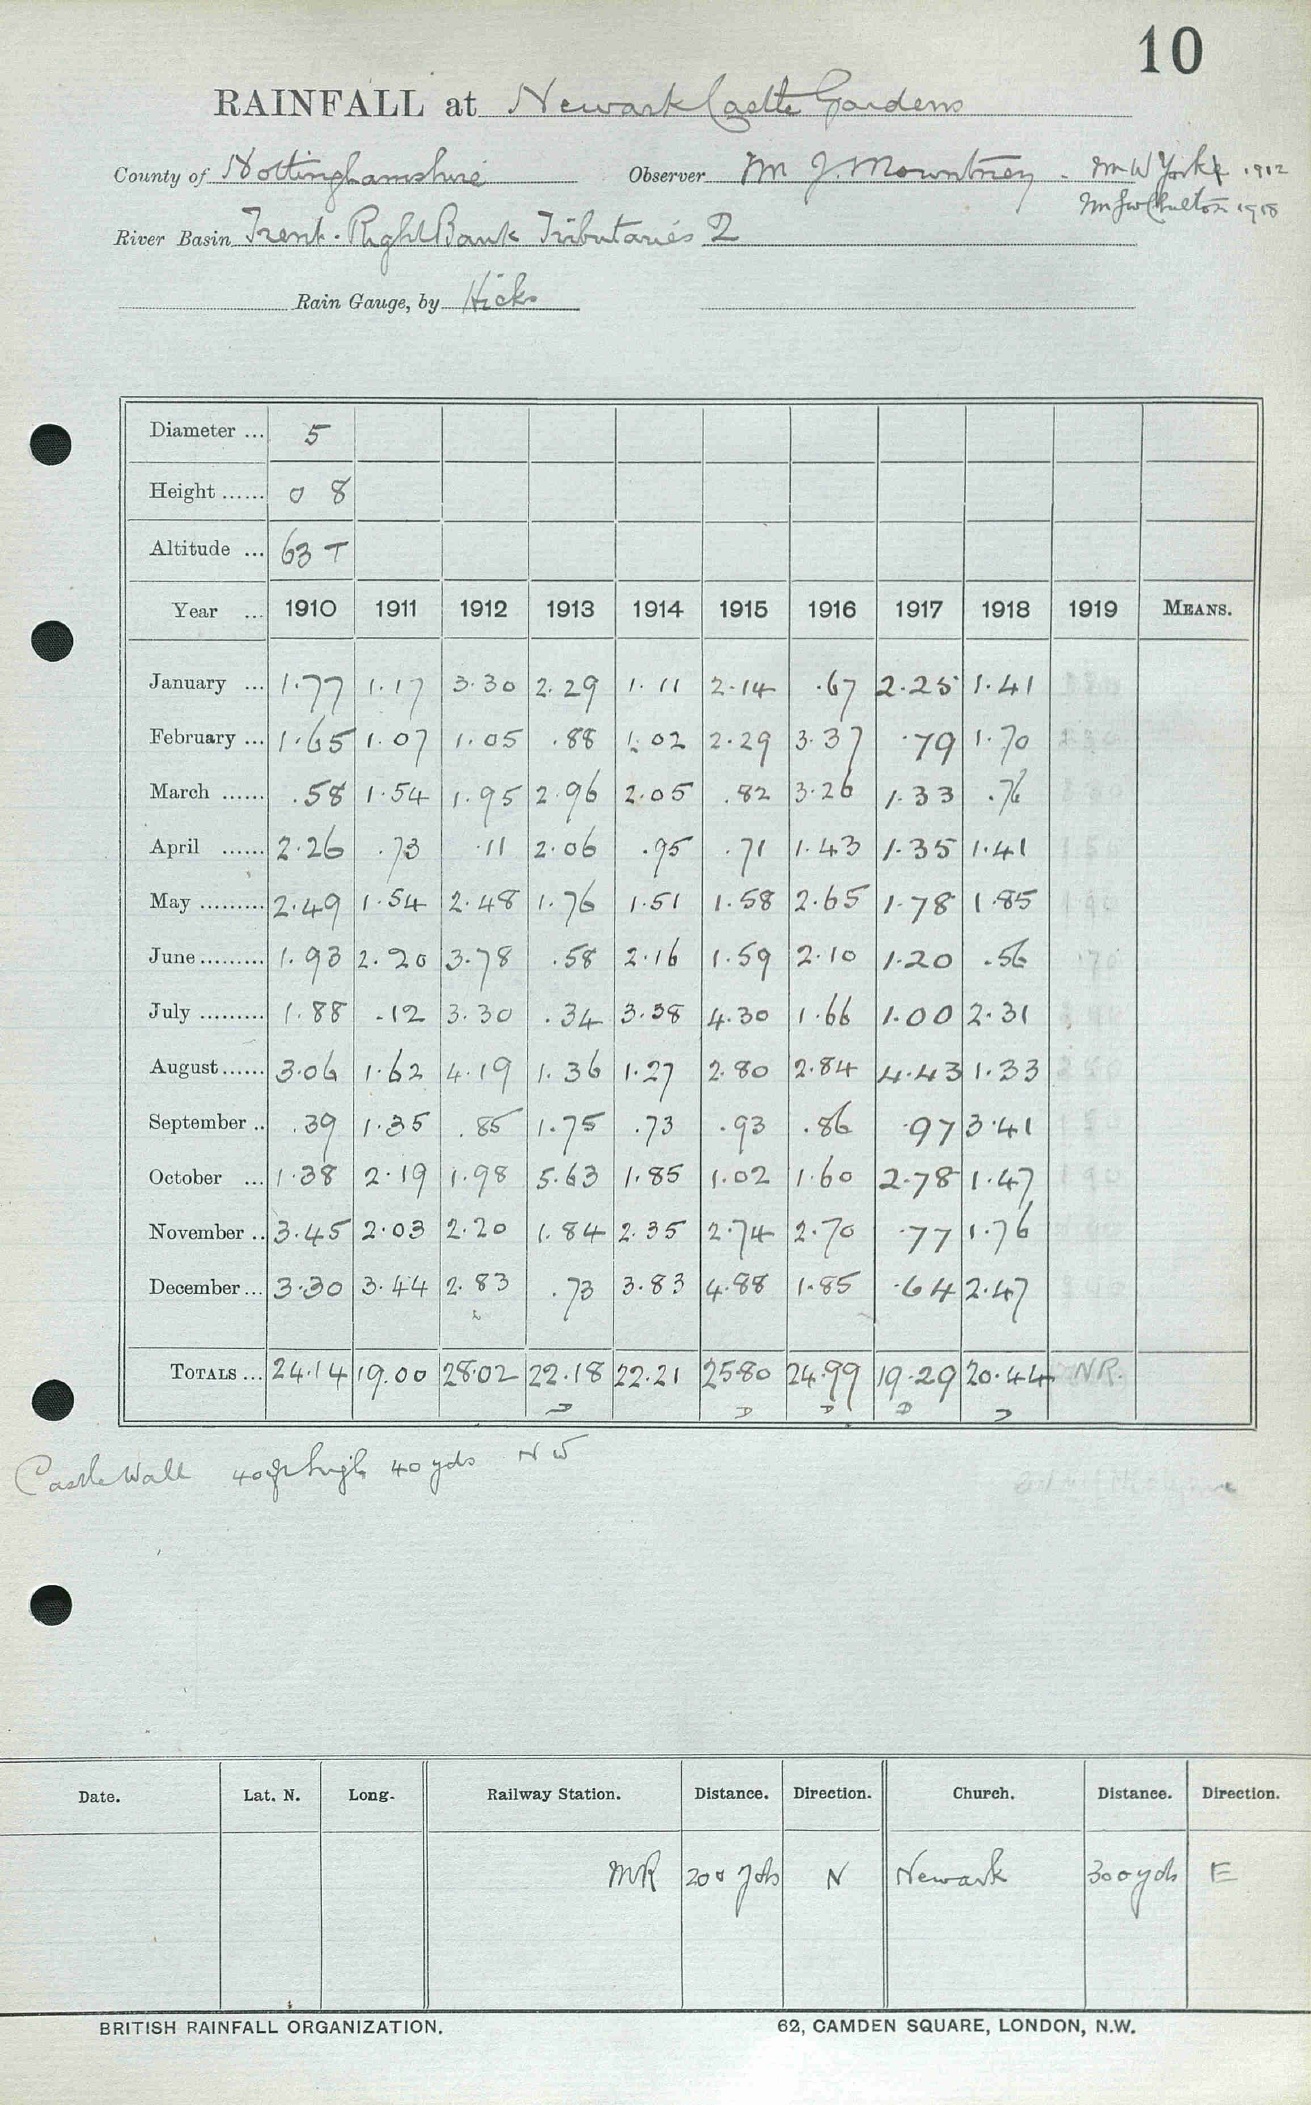 10
RAINFALL at Newark Castle Gardens
County of Nottinghamshire Observer Mr J. Mountney - Mr W Yorke 1912
1918
River Basin Trent. Right Bank Tributaries 2
Rain Gauge, by Hicks
Diameter ... 5
Height ...... 0 8
Altitude ... 63 T
Year ... 1910 1911 1912 1913 1914 1915 1916 1917 1918 1919 MEANS.
January ... 1.77 1.17 3.30 2.29 1.11 2.14 .67 2.25 1.41
February ... 1.65 1.07 1.05 .88 1.02 2.29 3.37 .79 1.70
March ...... .58 1.54 1.95 2.96 2.05 .82 3.26 1.33 .76
April ...... 2.26 .73 .11 2.06 .95 .71 1.43 1.35 1.41
May ......... 2.49 1.54 2.48 1.76 1.51 1.58 2.65 1.78 1.85
June ......... 1.93 2.20 3.78 .58 2.16 1.59 2.10 1.20 .56
July ......... 1.88 .12 3.30 .34 3.38 4.30 1.66 1.00 2.31
August ...... 3.06 1.62 4.19 1.36 1.27 2.80 2.84 4.43 1.33
September .. .39 1.35 .85 1.75 .73 .93 .86 .97 3.41
October ... 1.38 2.19 1.98 5.63 1.85 1.02 1.60 2.78 1.47
November .. 3.45 2.03 2.20 1.84 2.35 2.74 2.70 .77 1.76
December ... 3.30 3.44 2.83 .73 3.83 4.88 1.85 .64 2.47
TOTALS ... 24.14 19.00 28.02 22.18 22.21 25.80 24.99 19.29 20.44 NR.
D D D D D
Castle Wall 40 ft high 40 yds N W
Date. Lat. N. Long. Railway Station. Distance. Direction. Church. Distance. Direction.
MR 200 yds N Newark 300 yds E
BRITISH RAINFALL ORGANIZATION. 62, CAMDEN SQUARE, LONDON, N.W.